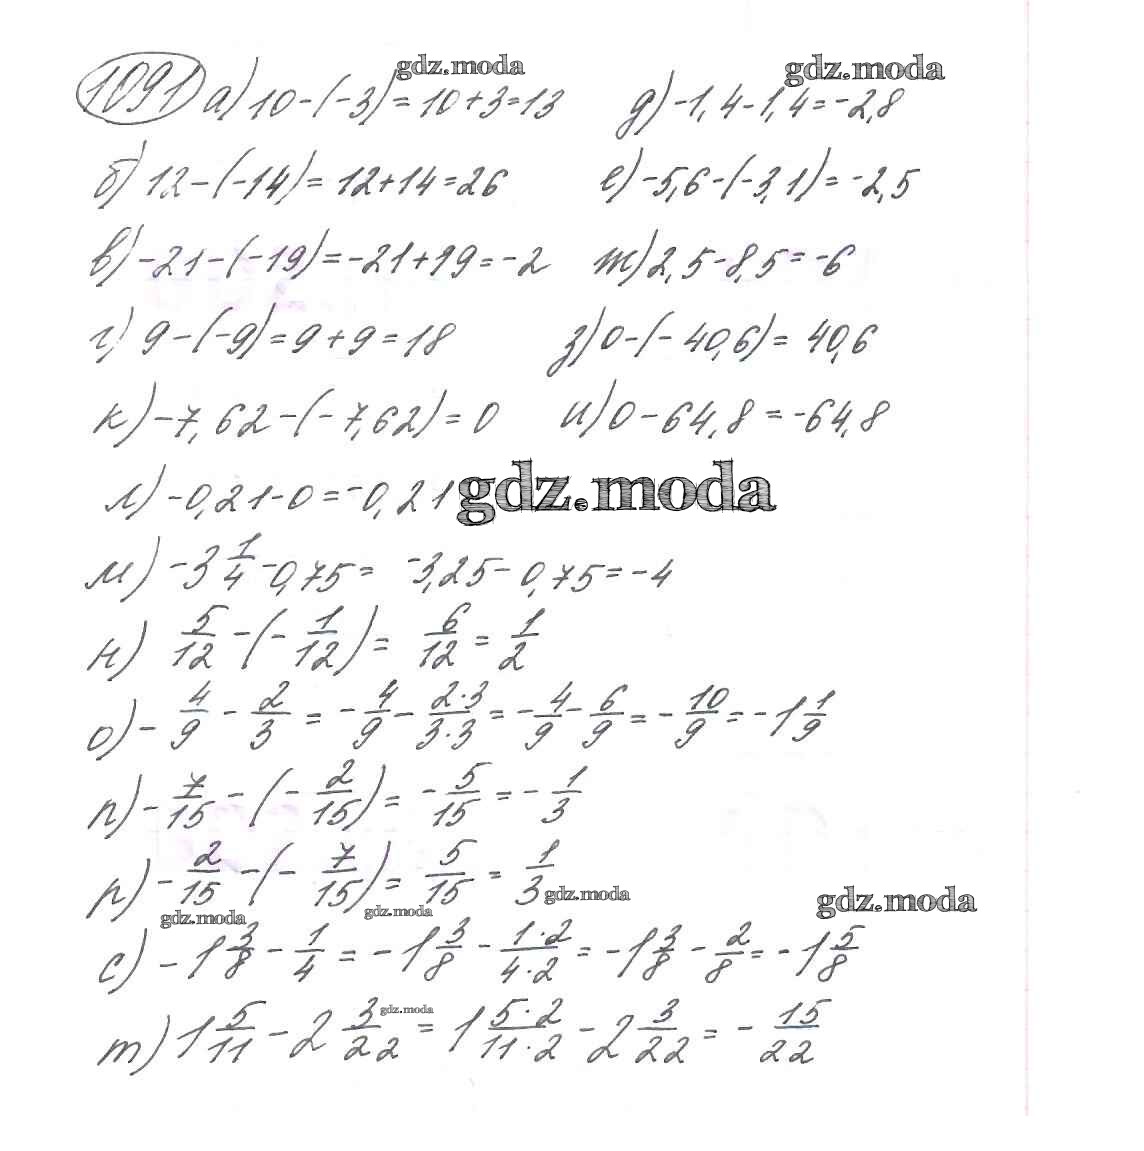 1091 а) 10-(-3)=10+3=13 д) -1,4-1,4=-2,8
gdz.moda gdz.moda
б) 12-(-14)=12+14=26 е) -5,6-(-3,1)=-2,5
в) -21-(-19)=-21+19=-2 ж) 2,5-8,5=-6
г) 9-(-9)=9+9=18 з) 0-(-40,6)=40,6
к) -7,62-(-7,62)=0 и) 0-64,8=-64,8
л) -0,21-0=-0,21 gdz.moda
м) -3 1/4 -0,75= -3,25-0,75=-4
н) 5/12 -(- 1/12)= 6/12 = 1/2
о) - 4/9 - 2/3 = - 4/9 - 2·3/3·3 = - 4/9 - 6/9 = - 10/9 = -1 1/9
п) - 7/15 -(- 2/15)= - 5/15 = - 1/3
р) - 2/15 -(- 7/15)= 5/15 = 1/3
gdz.moda gdz.moda gdz.moda gdz.moda
с) -1 3/8 - 1/4 = -1 3/8 - 1·2/4·2 = -1 3/8 - 2/8 = -1 5/8
gdz.moda
т) 1 5/11 - 2 3/22 = 1 5·2/11·2 - 2 3/22 = - 15/22